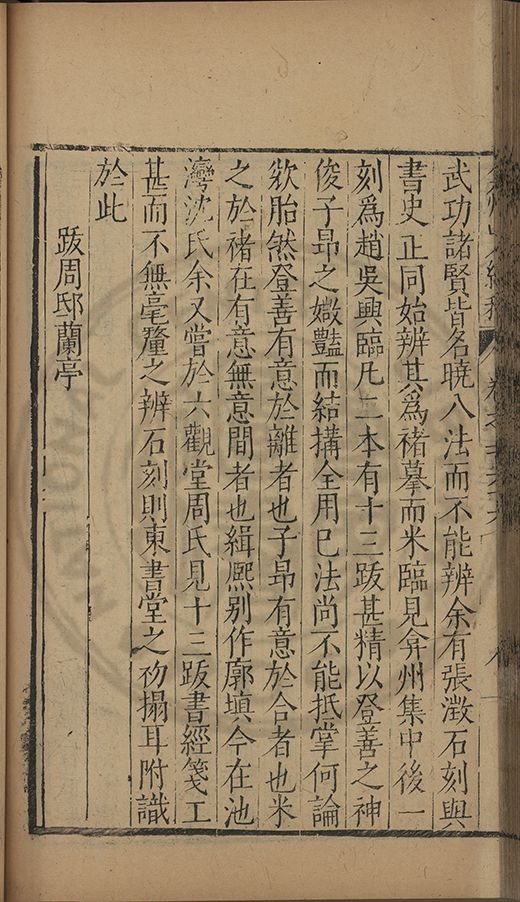 武功諸賢皆名曉八法而不能辨余有張澂石刻與
書史正同始辨其為褚摹而米臨見弇州集中後一
刻為趙吳興臨凡二本有十三跋甚精以登善之神
俊子昂之媺豔而結搆全用已法尚不能抵掌何論
欵胎然登善有意於離者也子昂有意於合者也米
之於褚在有意無意間者也緝熈别作廓填今在池
灣沈氏余又嘗於六觀堂周氏見十三跋書經箋工
甚而不無毫釐之辨石刻則東書堂之初搨耳附識
於此
跋周邸蘭亭